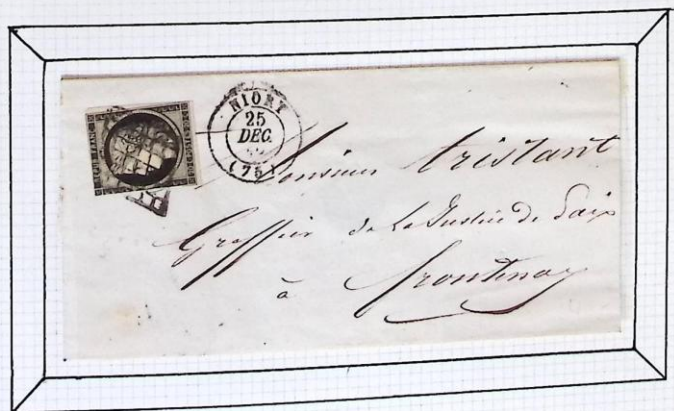 NIORT
25
DEC.
(75)
Monsieur Tristant
Greffier de la Justice de Paix
à Frontenay